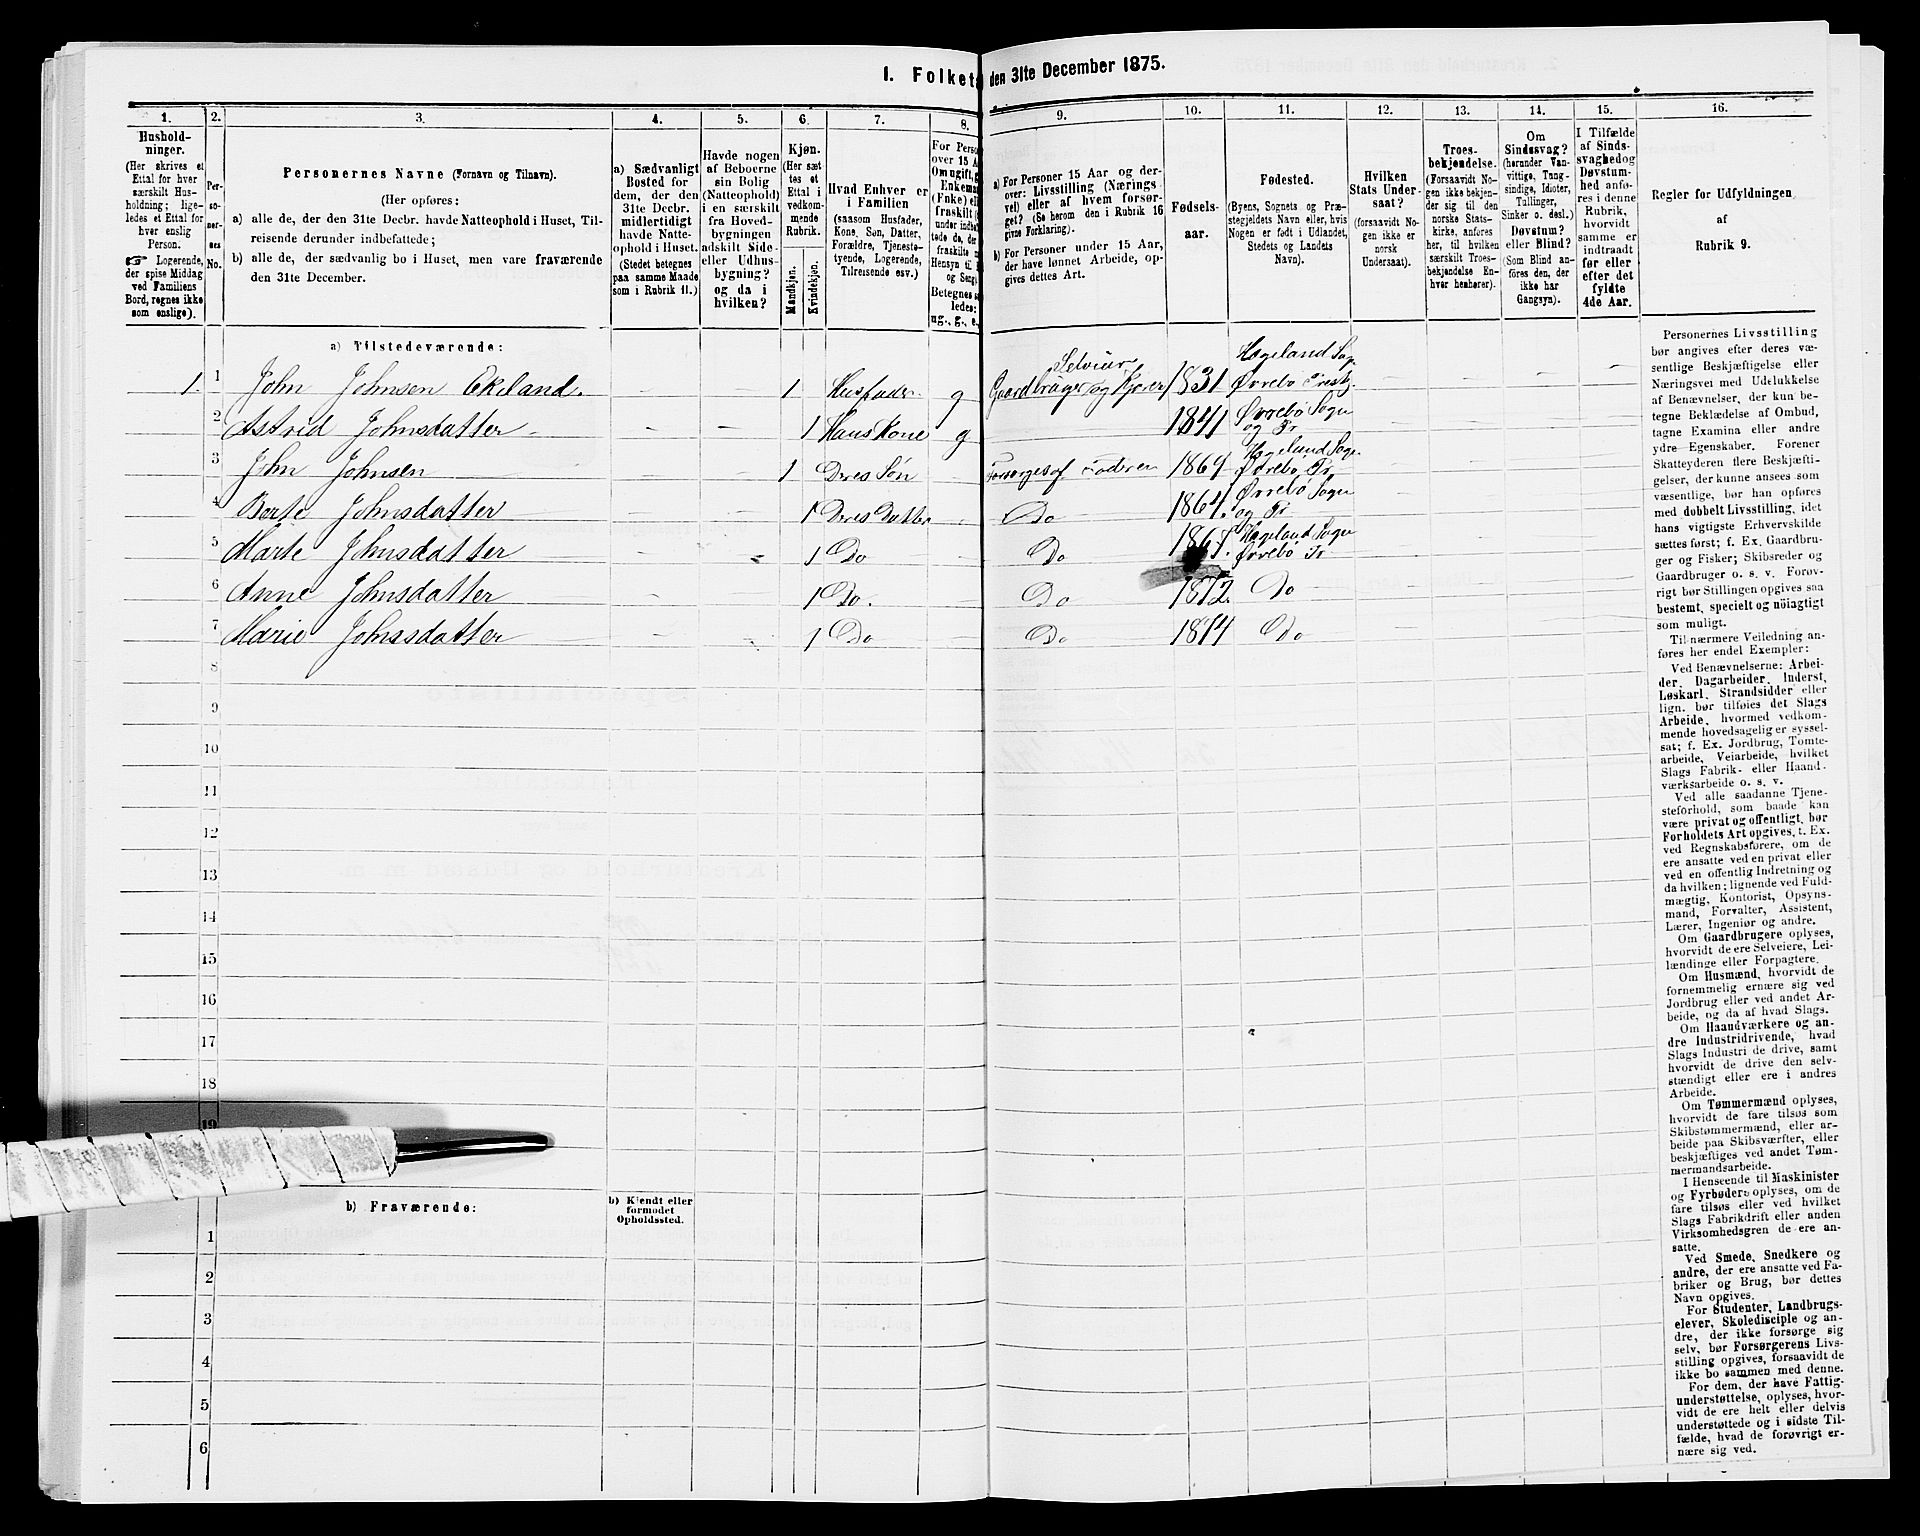 1. Folket
den 31te December 1875.
1.
Hushold-
ninger.
(Her skrives et
Ettal for hver
særskilt Hus-
holdning; lige-
ledes et Ettal for
hver enslig
Person.
☞ Logerende,
der spise Middag
ved Familiens
Bord, regnes ikke
som enslige).
2.
Per-
so-
ner-
nes
No.
3.
Personernes Navne (Fornavn og Tilnavn).
(Her opføres:
a) alle de, der den 31te Decbr. havde Natteophold i Huset, Til-
reisende derunder indbefattede;
b) alle de, der sædvanlig bo i Huset, men vare fraværende
den 31te December.
4.
a) Sædvanligt
Bosted for
dem, der den
31te Decbr.
midlertidigt
havde Natte-
ophold i Huset.
(Stedet betegnes
paa samme Maade
som i Rubrik 11.)
5.
Havde nogen
af Beboerne
sin Bolig
(Natteophold)
i en særskilt
fra Hoved-
bygningen
adskilt Side-
eller Udhus-
bygning?
og da i
hvilken?
6.
Kjøn.
(Her sæt-
tes et
Ettal i
vedkom-
mende
Rubrik.
Mandkjøn.
Kvindekjøn.
7.
Hvad Enhver er
i Familien
(saasom Husfader,
Kone, Søn, Datter,
Forældre, Tjeneste-
tyende, Logerende,
Tilreisende osv.)
8.
For Perso
over 15 A
Om ugift, g
Enkema
(Enke) el
fraskilt (
under indbe
tede de, der
fraskilte
Hensyn til
og Seng
Betegnes s
ledes:
ug., g., e.,
9.
a) For Personer 15 Aar og der-
over: Livsstilling (Nærings
vei) eller af hvem forsør-
get? (Se herom den i Rubrik 16
givne Forklaring).
b) For Personer under 15 Aar,
der have lønnet Arbeide, op-
gives dettes Art.
10.
Fødsels-
aar.
11.
Fødested.
(Byens, Sognets og Præ-
stegjeldets Navn eller, hvis
Nogen er født i Udlandet,
Stedets og Landets
Navn).
12.
Hvilken
Stats Under-
saat?
(forsaavidt No-
gen ikke er
norsk
Undersaat).
13.
Troes-
bekjendelse.
(Forsaavidt No-
gen ikke bekjen-
der sig til den
norske Stats-
kirke, anføres
her, til hvilken
særskilt Troes-
bekjendelse En-
hver henhører).
14.
Om
Sindssvag?
(herunder Van-
vittige, Tung-
sindige, Idioter,
Tullinger,
Sinker o. desl.)
Døvstum?
eller Blind?
(Som Blind an-
føres den, der
ikke har
Gangsyn).
15.
I Tilfælde
af Sinds-
svaghed og
Døvstum-
hed anfø-
res i denne
Rubrik,
hvorvidt
samme er
indtraadt
før eller
efter det
fyldte
4de Aar.
16.
Regler for Udfyldningen
af
Rubrik 9.
a) Tilstedeværende:
1. 1 John Johnsen Ekeland. 1 Husfader g Selveier Gaardbruger og Kjører 1831 Hægeland Sog. Øvrebø Prestg.
2 Astrid Johnsdatter 1 Hans Kone g 1841 Øvrebø Sogn og Pr
3 John Johnsen 1 Deres Søn Forsørges af Faderen 1864 Hægeland Sogn Øvrebø Pr
4 Berte Johnsdatter 1 Deres Datter Do 1864. Øvrebø Sogn og Pr
5 Marte Johnsdatter 1 Do Do Hægeland Sogn Øvrebø Pr
6 Anne Johnsdatter 1 Do. Do 1872. Do
7 Marie Johnsdatter 1 Do Do 1874 Do
8
9
10
11
12
13
14
15
16
17
18
19
b) Fraværende:
b) Kjendt eller
formodet
Opholdssted.
1
2
3
4
5
6
Personernes Livsstilling
bør angives efter deres væ-
sentlige Beskjæftigelse eller
Næringsvei med Udelukkelse
af Benævnelser, der kun be-
tegne Beklædelse af Ombud,
tagne Examina eller andre
ydre Egenskaber. Forener
Skatteyderen flere Beskjæfti-
gelser, der kunne ansees som
væsentlige, bør han opføres
med dobbelt Livsstilling, idet
hans vigtigste Erhvervskilde
sættes først; f. Ex. Gaardbru-
ger og Fisker; Skibsreder og
Gaardbruger o. s. v. Forøv-
rigt bør Stillingen opgives saa
bestemt, specielt og nöiagtigt
som muligt.
Til nærmere Veiledning an-
føres her endel Exempler:
Ved Benævnelserne: Arbei-
der, Dagarbeider, Inderst,
Løskarl, Strandsidder eller
lign. bør tilføies det Slags
Arbeide, hvormed vedkom-
mende hovedsagelig er syssel-
sat; f. Ex. Jordbrug, Tomte-
arbeide, Veiarbeide, hvilket
Slags Fabrik- eller Haand-
værksarbeide o. s. v.
Ved alle saadanne Tjene-
steforhold, som baade kan
være privat og offentligt, bør
Forholdets Art opgives, t. Ex.
ved Regnskabsførere, om de
ere ansatte ved en privat eller
ved en offentlig Indretning og
da hvilken; lignende ved Fuld-
mægtig, Kontorist, Opsyns-
mand, Forvalter, Assistent,
Lærer, Ingeniør og andre.
Om Gaardbrugere oplyses,
hvorvidt de ere Selveiere, Lei-
lændinge eller Forpagtere.
Om Husmænd, hvorvidt de
fornemmelig ernære sig ved
Jordbrug eller ved andet Ar-
beide, og da af hvad Slags.
Om Haandværkere og an-
dre Industridrivende, hvad
Slags Industri de drive, samt
hvorvidt de drive den selv-
stændigt eller ere i andres
Arbeide.
Om Tømmermænd oplyses,
hvorvidt de fare tilsøs som
Skibstømmermænd, eller ar-
beide paa Skibsværfter, eller
beskjæftiges ved andet Tøm-
mermandsarbeide.
I Henseende til Maskinister
og Fyrbødere oplyses, om de
fare tilsøs eller ved hvilket
Slags Fabrikdrift eller anden
Virksomhedsgren de ere an-
satte.
Ved Smede, Snedkere og
andre, der ere ansatte ved Fa-
briker og Brug, bør dettes
Navn opgives.
For Studenter, Landbrugs-
elever, Skoledisciple og an-
dre, der ikke forsørge sig
selv, bør Forsørgerens Livs-
stilling opgives, forsaavidt de
ikke bo sammen med denne.
For dem, der have Fattig-
understøttelse, oplyses, hvor-
vidt de ere helt eller delvis
understøttede og i sidste Til-
fælde, hvad de forøvrigt er-
nære sig ved.